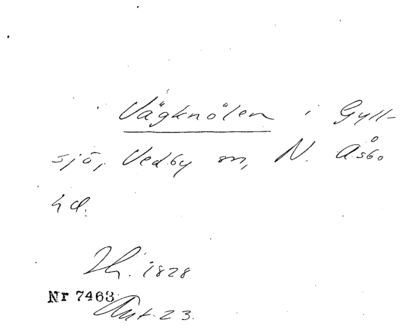 Vägknölen i Gyll-
sjö, Vedby sn, N. Åsbo
hd.
Ih. 1828
Nr 7463
Ant. 23.